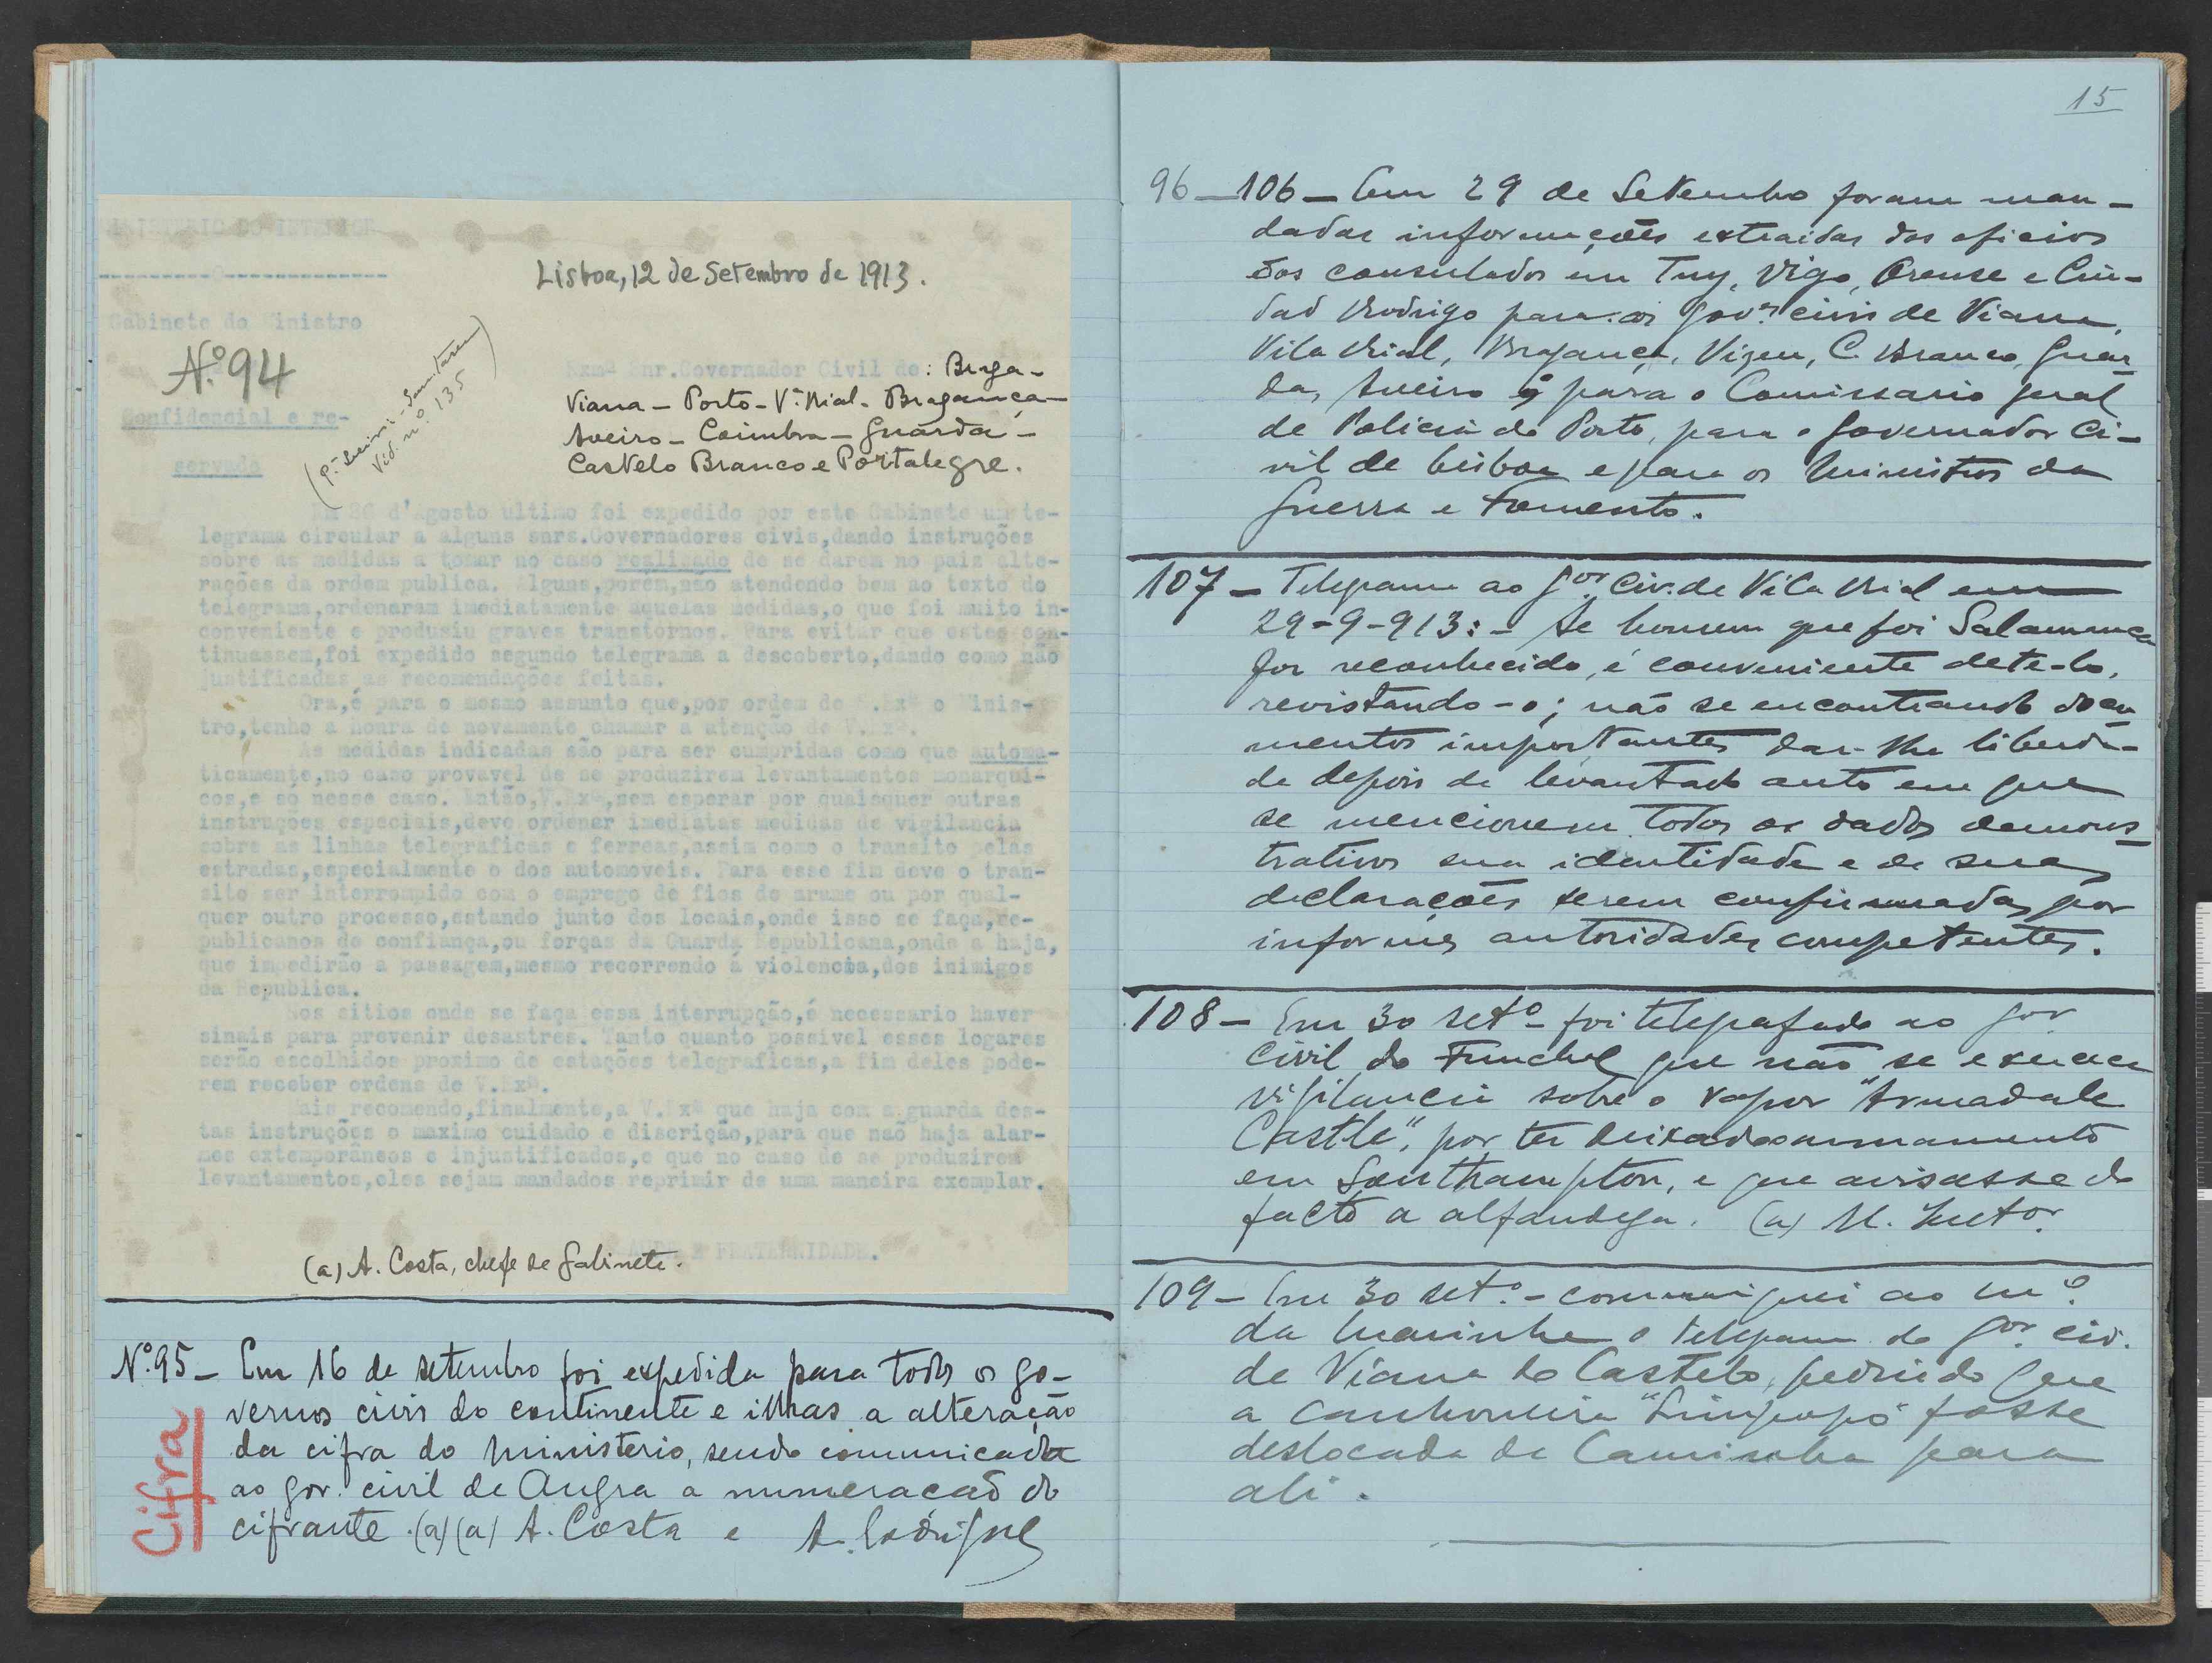 MINISTERIO DO INTERIOR
Lisboa, 12 de Setembro de 1913.
Gabinete do Ministro
Nº 94
(P.ª Leiria - Santarem
Vid. n.º 135)
Confidencial e re-
servado
Exmº Snr.Governador Civil de: Braga -
Viana - Porto - V.ª Rial - Bragança -
Aveiro - Coimbra - Guarda -
Castelo Branco e Portalegre.
Em 26 d'Agosto ultimo foi expedido por este Gabinete um te-
legrama circular a alguns snrs.Governadores civis,dando instruções
sobre as medidas a tomar no caso realizado de se darem no paiz alte-
rações da ordem publica. Alguns,porém,não atendendo bem ao texto do
telegrama,ordenaram imediatamente aquelas medidas,o que foi muito in-
conveniente e produziu graves transtornos. Para evitar que estes con-
tinuassem,foi expedido segundo telegrama a descoberto,dando como não
justificadas as recomendações feitas.
Ora,é para o mesmo assunto que,por ordem de S.Exª o Minis-
tro,tenho a honra de novamente chamar a atenção de V.Exª.
As medidas indicadas são para ser cumpridas como que automa-
ticamente,no caso provavel de se produzirem levantamentos monarqui-
cos,e só nesse caso. Então,V.Exª,sem esperar por quaisquer outras
instruções especiais,deve ordenar imediatas medidas de vigilancia
sobre as linhas telegraficas e ferreas,assim como o transito pelas
estradas,especialmente o dos automoveis. Para esse fim deve o tran-
sito ser interrompido com o emprego de fios de arame ou por qual-
quer outro processo,estando junto dos locais,onde isso se faça,re-
publicanos de confiança,ou forças da Guarda Republicana,onde a haja,
que impedirão a passagem,mesmo recorrendo á violencia,dos inimigos
da Republica.
Nos sitios onde se faça essa interrupção,é necessario haver
sinais para prevenir desastres. Tanto quanto possivel esses logares
serão escolhidos proximo de estações telegraficas,a fim deles pode-
rem receber ordens de V.Exª.
Mais recomendo,finalmente,a V.Exª que haja com a guarda des-
tas instruções o maximo cuidado e discrição,para que naõ haja alar-
mes extemporaneos e injustificados,e que no caso de se produzirem
levantamentos,eles sejam mandados reprimir de uma maneira exemplar.
SAUDE E FRATERNIDADE.
(a) A. Costa, chefe de Gabinete.
Nº 95 - Em 16 de setembro foi expedida para todos os go-
vernos civis do continente e ilhas a alteração
da cifra do Ministerio, sendo comunicada
ao gov. civil de Angra a numeração do
cifrante. (a) (a) A. Costa e A.
Cifra
15
96 - 106 - Em 29 de Setembro foram man-
dadas informações extraidas dos oficios
dos consulados em Tuy, Vigo, Orense e Ciu-
dad Rodrigo para os gov.es civis de Viana,
Vila Rial, Bragança, Vizeu, C. Branco, Guar-
da, Aveiro e para o Comissario geral
de Policia do Porto, para o Governador Ci-
vil de Lisboa e para os Ministros da
Guerra e Fomento.
107 - Telegrama ao g.or civ. de Vila Rial em
29-9-913: - Se homem que foi Salamanca
for reconhecido, é conveniente dete-lo,
revistando-o; não se encontrando docu-
mentos importantes dar-lhe liberda-
de depois de levantado auto em que
se mencionem todos os dados demons-
trativos sua identidade e de suas
declarações serem confirmadas por
informes autoridades competentes.
108 - Em 30 set.o - foi telegrafado ao gov.
civil do Funchal que não se exerça
vigilancia sobre o vapor "Armadale
Castle", por ter deixado armamento
em Southampton, e que avisasse do
facto a alfandega. (a)
109 - Em 30 set.o - communiquei ao M.o
da Marinha o telegrama do g.or civ.
de Viana do Castelo, pedindo que
a canhoneira "Limpopo" fosse
deslocada de Caminha para
ali.